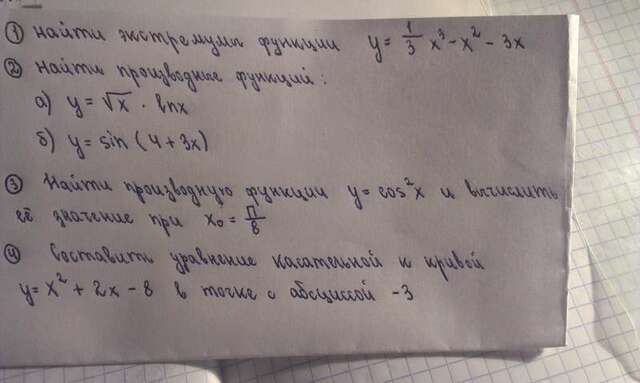 ① Найти экстремумы функции y = 1/3 x³ - x² - 3x
② Найти производные функций:
а) y = √x · lnx
б) y = sin (4 + 3x)
③ Найти производную функции y = cos²x и вычислить
её значение при x₀ = П/8
④ Составить уравнение касательной к кривой
y = x² + 2x - 8 в точке с абсциссой -3